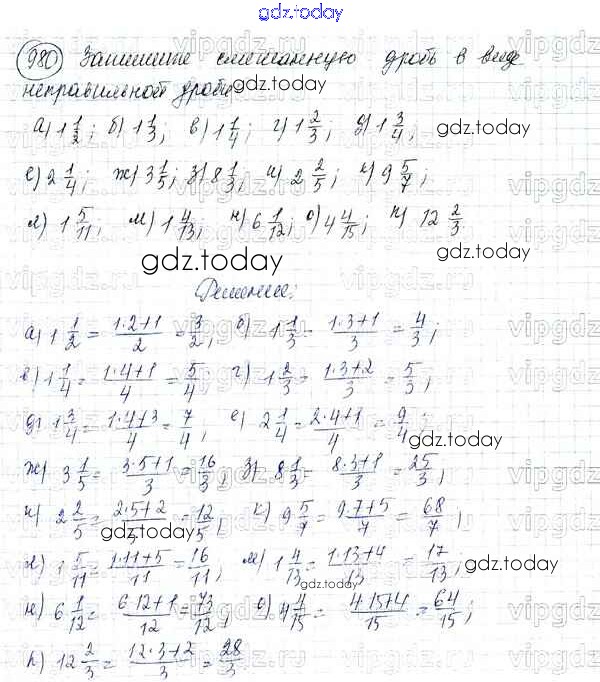 gdz.today
980 Запишите смешанную дробь в виде
неправильной дроби
gdz.today
а) 1 1/2; б) 1 1/3; в) 1 1/4; г) 1 2/3; д) 1 3/4; gdz.today
е) 2 1/4; ж) 3 1/5; з) 8 1/3; и) 2 2/5; к) 9 5/7;
gdz.today
л) 1 5/11; м) 1 4/13; н) 6 1/12; о) 4 4/15; п) 12 2/3
gdz.today
gdz.today
Решение:
а) 1 1/2 = (1·2+1)/2 = 3/2; б) 1 1/3 = (1·3+1)/3 = 4/3;
в) 1 1/4 = (1·4+1)/4 = 5/4; г) 1 2/3 = (1·3+2)/3 = 5/3;
д) 1 3/4 = (1·4+3)/4 = 7/4; е) 2 1/4 = (2·4+1)/4 = 9/4;
gdz.today
ж) 3 1/5 = (3·5+1)/3 = 16/3; з) 8 1/3 = (8·3+1)/3 = 25/3;
gdz.today
и) 2 2/5 = (2·5+2)/5 = 12/5; к) 9 5/7 = (9·7+5)/7 = 68/7;
gdz.today
л) 1 5/11 = (1·11+5)/11 = 16/11; м) 1 4/13 = (1·13+4)/13 = 17/13;
gdz.today
gdz.today
н) 6 1/12 = (6·12+1)/12 = 73/12; о) 4 4/15 = (4·15+4)/15 = 64/15;
п) 12 2/3 = (12·3+2)/3 = 28/3
gdz.today